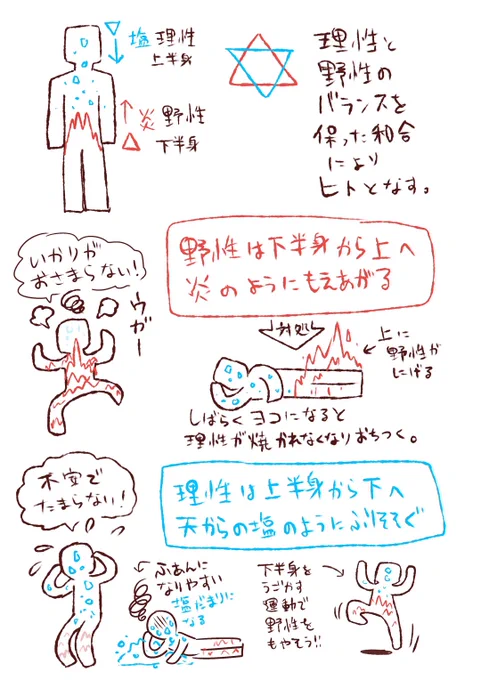 塩 理性
上半身
炎 野性
下半身
理性と
野性の
バランスを
保った和合
により
ヒトとなす。
いかりが
おさまらない!
ウガー
野性は下半身から上へ
炎のようにもえあがる
対処
上に
野性が
にげる
しばらくヨコになると
理性が焼かれなくなりおちつく。
不安で
たまらない!
理性は上半身から下へ
天からの塩のようにふりそそぐ
ふあんに
なりやすい
塩だまりに
なる
下半身を
うごかす
運動で
野性を
もやそう!!